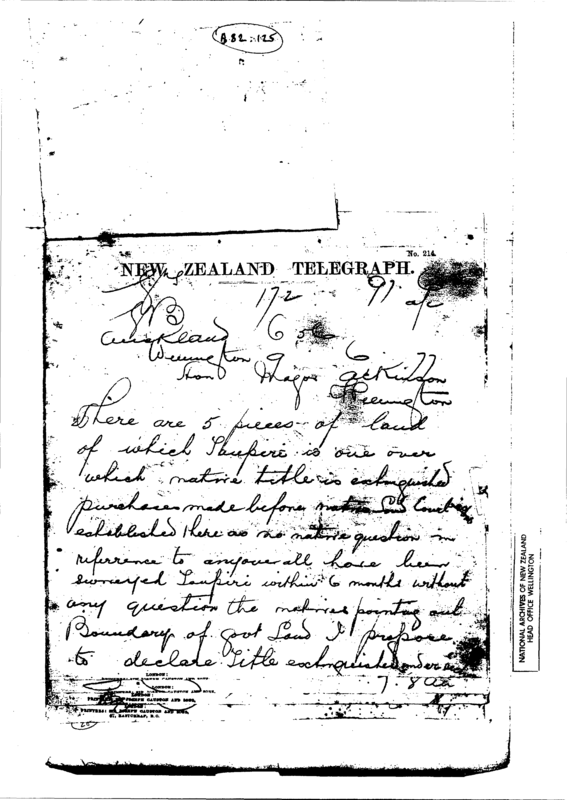 A82.125
No. 214.
NEW ZEALAND TELEGRAPH.
172 97 a/c
Auckland 6
Wellington 9 6 77
Hon Major Atkinson
Wellington
There are 5 pieces of land
of which Taupiri is one over
which native title is extinguished
purchases made before native Land Court
established there is no native question in
reference to any over all have been
surveyed Taupiri within 6 months without
any question the natives pointing out
Boundary of govt Land I propose
to declare Title extinguished under
LONDON:
LONDON:
LONDON:
PRINTERS: SIR JOSEPH CAUSTON AND SONS,
ST. EASTCHEAP, E.C.
NATIONAL ARCHIVES OF NEW ZEALAND
HEAD OFFICE WELLINGTON